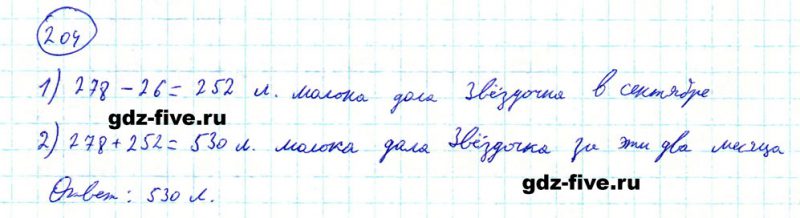 204
1) 278 - 26 = 252 л. молока дала Звёздочка в сентябре
gdz-five.ru
2) 278 + 252 = 530 л. молока дала Звёздочка за эти два месяца
Ответ: 530 л.
gdz-five.ru